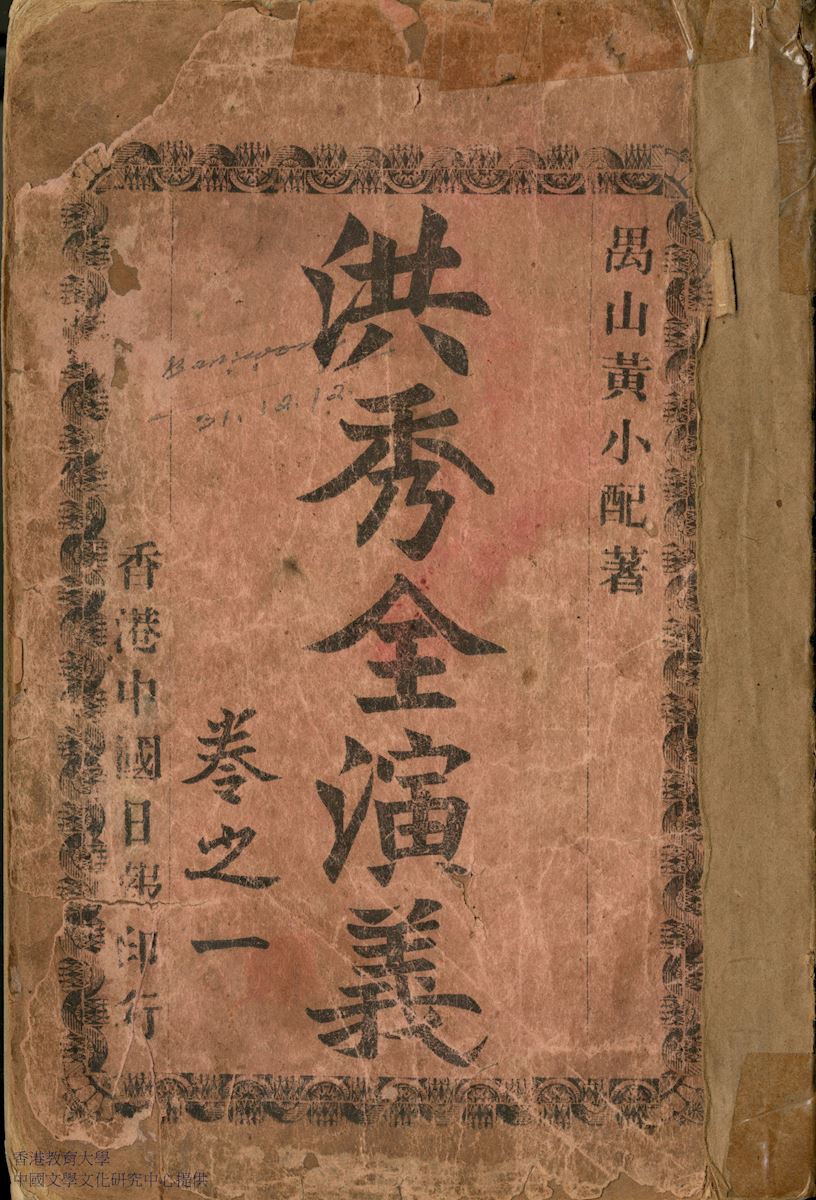 禺山黃小配著
洪秀全演義
卷之一
香港中國日報印行
31.12.12.
香港教育大學
中國文學文化研究中心提供